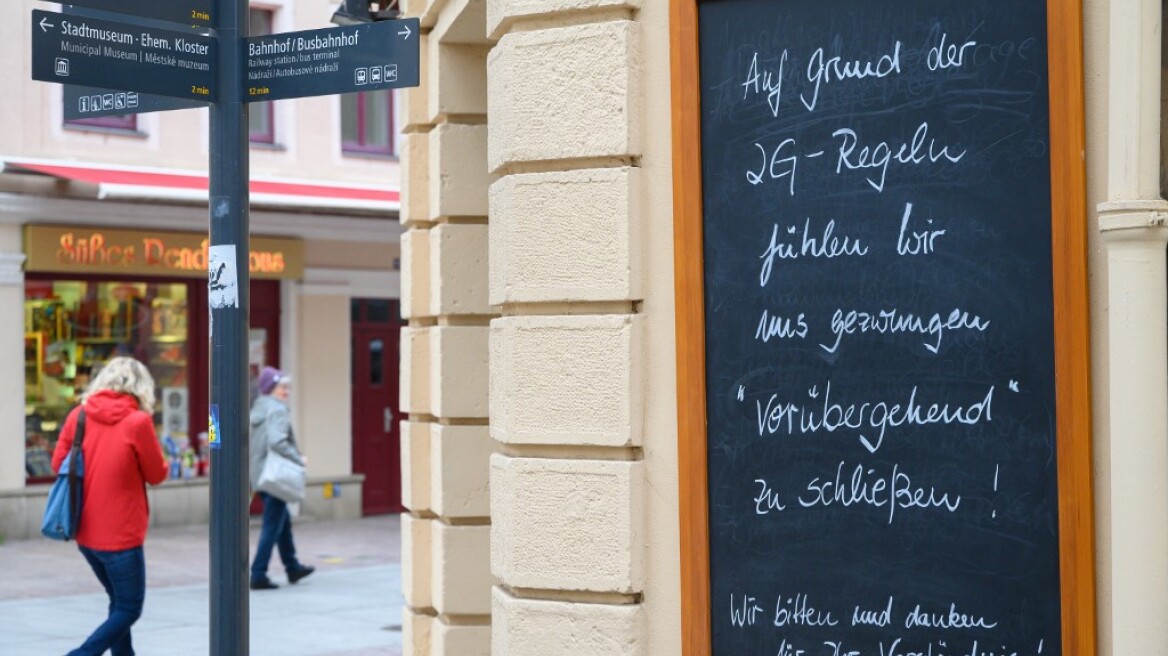 2 min
← Stadtmuseum · Ehem. Kloster
Municipal Museum | Městské muzeum
2 min
Bahnhof / Busbahnhof →
Railway station / bus terminal
Nádraží / Autobusové nádraží
WC
12 min
WC
Süßes Rendezvous
Auf Grund der
2G-Regeln
fühlen wir
uns gezwungen
"vorübergehend"
zu schließen!
Wir bitten und danken
für Ihr Verständnis!